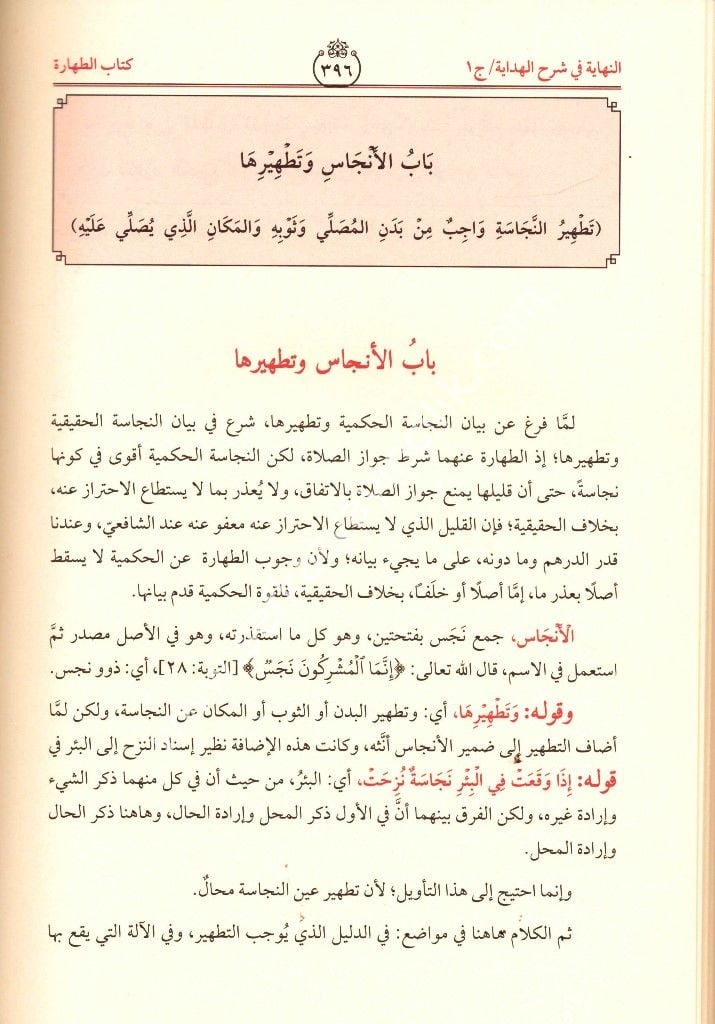 النهاية في شرح الهداية/ ج١
٣٩٦
كتاب الطهارة
بَابُ الأَنْجَاسِ وَتَطْهِيْرِهَا
(تَطْهِيْرُ النَّجَاسَةِ وَاجِبٌ مِنْ بَدَنِ المُصَلِّي وَثَوْبِهِ وَالمَكَانِ الَّذِي يُصَلِّي عَلَيْهِ)
بابُ الأنجاس وتطهيرها
لمَّا فرغ عن بيان النجاسة الحكمية وتطهيرها، شرع في بيان النجاسة الحقيقية
وتطهيرها؛ إذ الطهارة عنهما شرط جواز الصلاة، لكن النجاسة الحكمية أقوى في كونها
نجاسةً، حتى أن قليلها يمنع جواز الصلاة بالاتفاق، ولا يُعذر بما لا يستطاع الاحتراز عنه،
بخلاف الحقيقية؛ فإن القليل الذي لا يستطاع الاحتراز عنه معفو عنه عند الشافعيّ، وعندنا
قدر الدرهم وما دونه، على ما يجيء بيانه؛ ولأن وجوب الطهارة عن الحكمية لا يسقط
أصلًا بعذر ما، إمَّا أصلًا أو خلَفًا، بخلاف الحقيقية، فلقوة الحكمية قدم بيانها.
الْأَنْجَاس، جمع نَجَس بفتحتين، وهو كل ما استقذرته، وهو في الأصل مصدر ثمَّ
استعمل في الاسم، قال الله تعالى: ﴿إِنَّمَا الْمُشْرِكُونَ نَجَسٌ﴾ [التوبة: ٢٨]، أي: ذوو نجس.
وقوله: وَتَطْهِيْرِهَا، أي: وتطهير البدن أو الثوب أو المكان عن النجاسة، ولكن لمَّا
أضاف التطهير إلى ضمير الأنجاس أنَّثه، وكانت هذه الإضافة نظير إسناد النزح إلى البئر في
قوله: إِذَا وَقَعَتْ فِي الْبِئْرِ نَجَاسَةٌ نُزِحَتْ، أي: البئرُ، من حيث أن في كل منهما ذكر الشيء
وإرادة غيره، ولكن الفرق بينهما أنَّ في الأول ذكر المحل وإرادة الحال، وهاهنا ذكر الحال
وإرادة المحل.
وإنما احتيج إلى هذا التأويل؛ لأن تطهير عين النجاسة محالٌ.
ثم الكلام هاهنا في مواضع: في الدليل الذي يُوجب التطهير، وفي الآلة التي يقع بها